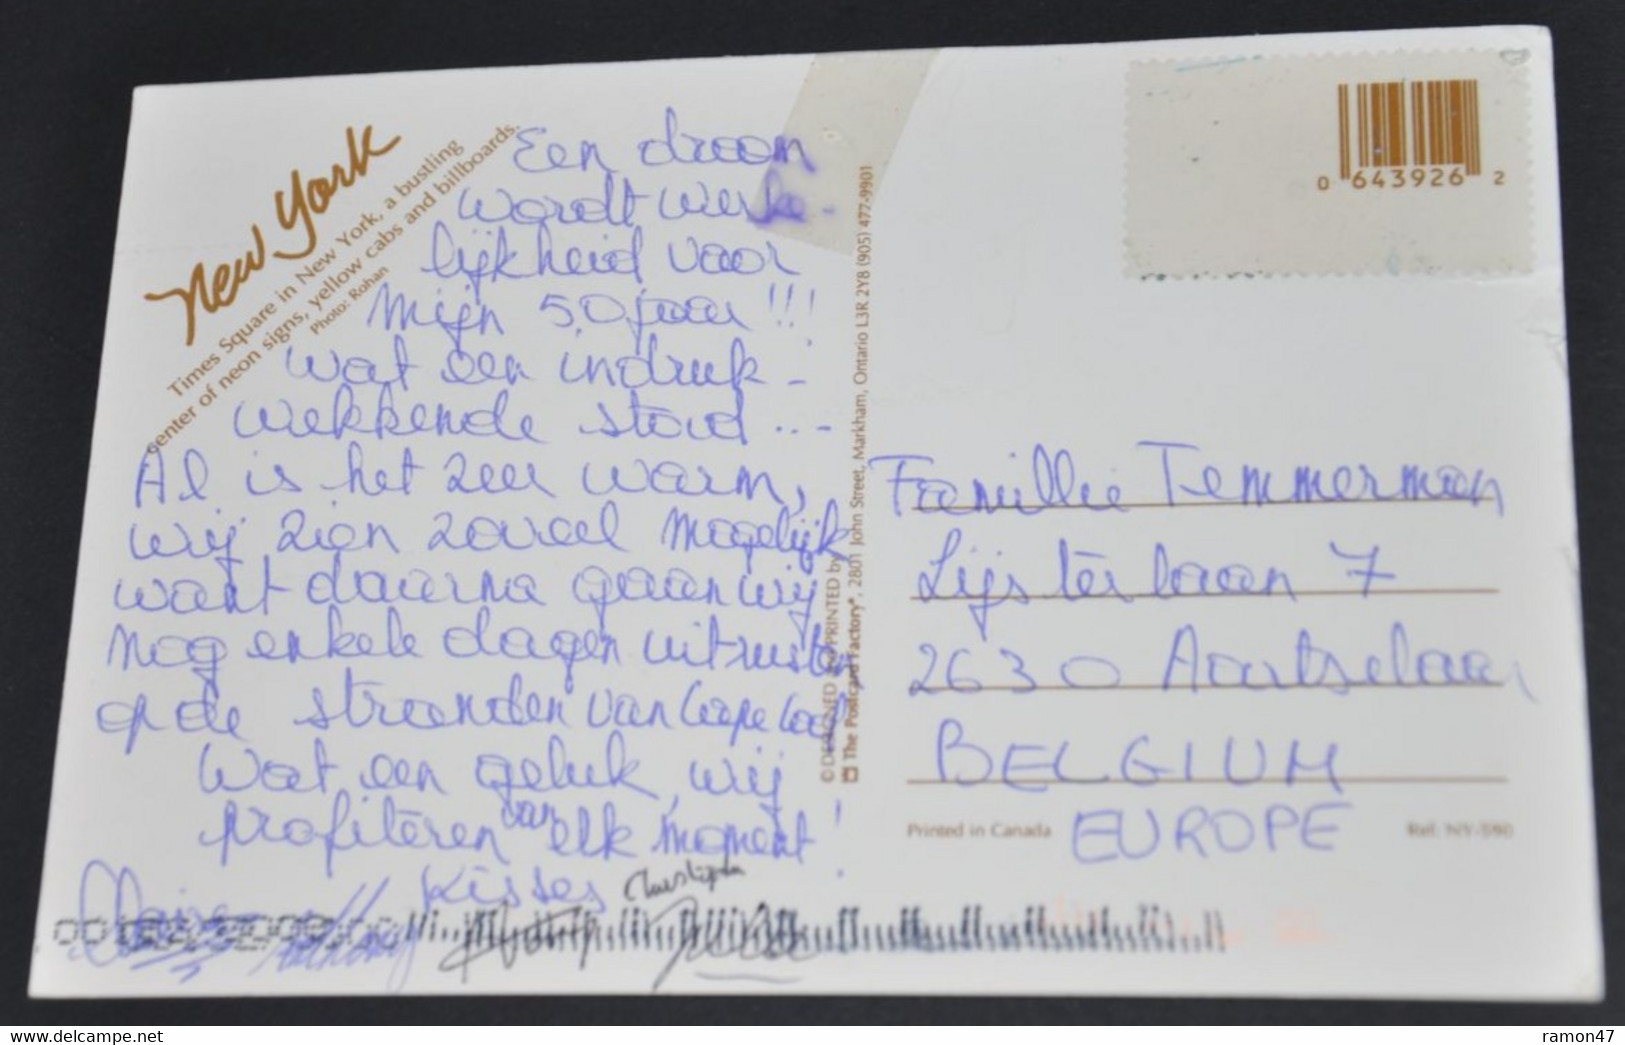 New York
Times Square in New York, a bustling
center of neon signs, yellow cabs and billboards.
Photo: Rohan
Een droom
wordt werke-
lijkheid voor
mijn 50 jaar !!!
Wat een indruk-
wekkende stad ...
Al is het zeer warm,
wij zien zoveel mogelijk
want daarna gaan wij
nog enkele dagen uitrusten
op de stranden van Cape Cod
Wat een geluk, wij
profiteren van elk moment!
Kisses
Christophe
Anthony
© DESIGNED AND PRINTED by
The Postcard Factory®, 2801 John Street, Markham, Ontario L3R 2Y8 (905) 477-9901
0 643926 2
Famillie Temmerman
Lijsterlaan 7
2630 Aartselaar
BELGIUM
EUROPE
Printed in Canada
delcampe.net
ramon47